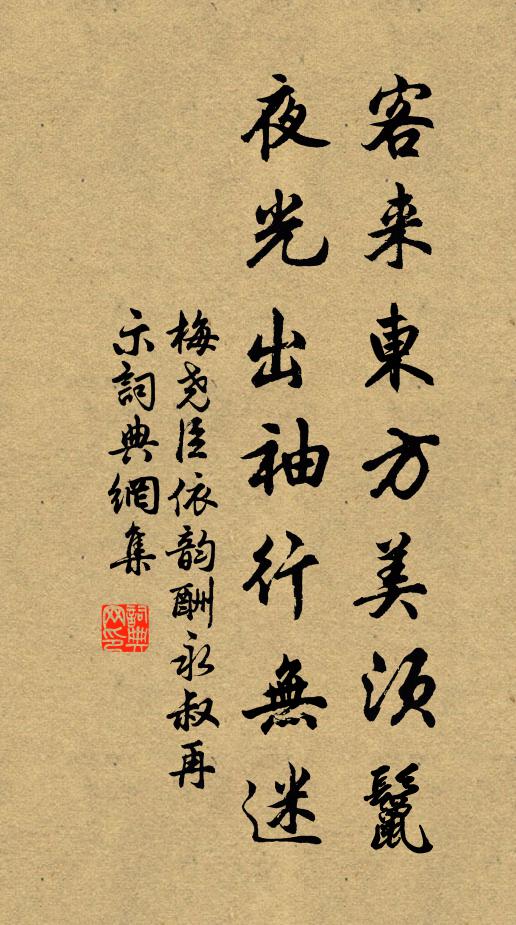 客来東方美須鬣
夜光出袖行無迷
梅尧臣依韵酬永叔再
示詞典網集
詞典
网印